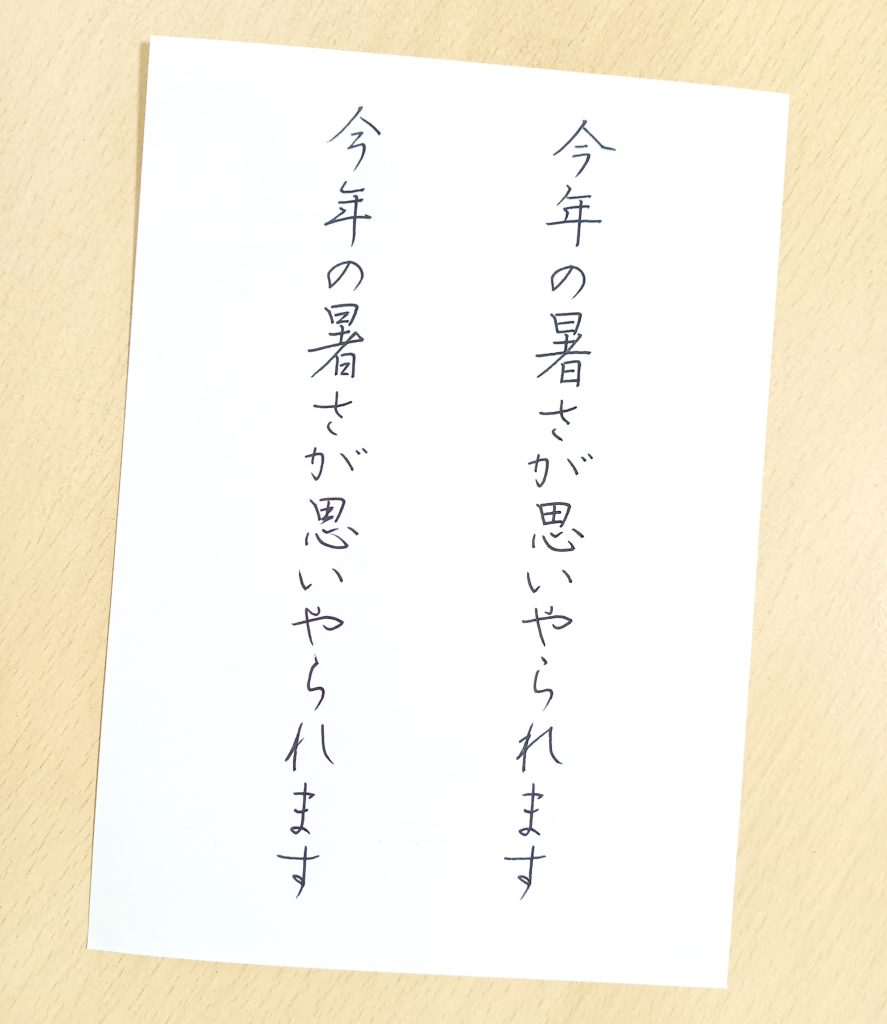 今年の暑さが思いやられます
今年の暑さが思いやられます